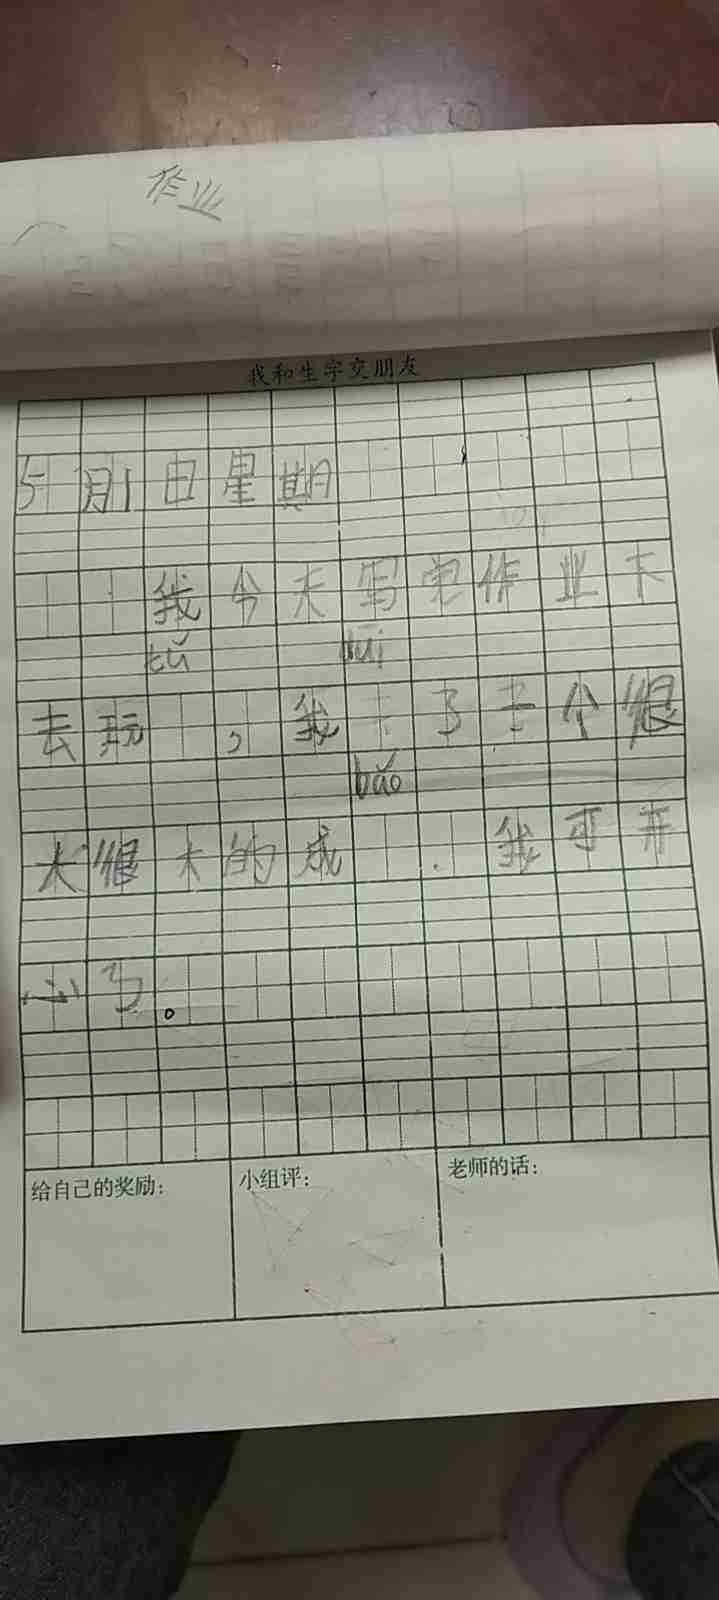 作业
我和生字交朋友
5月1日星期
我今天写完作业下
tǔ duī
去玩,我了一个很
bǎo
大很大的成.我可开
心了。
给自己的奖励: 小组评: 老师的话: